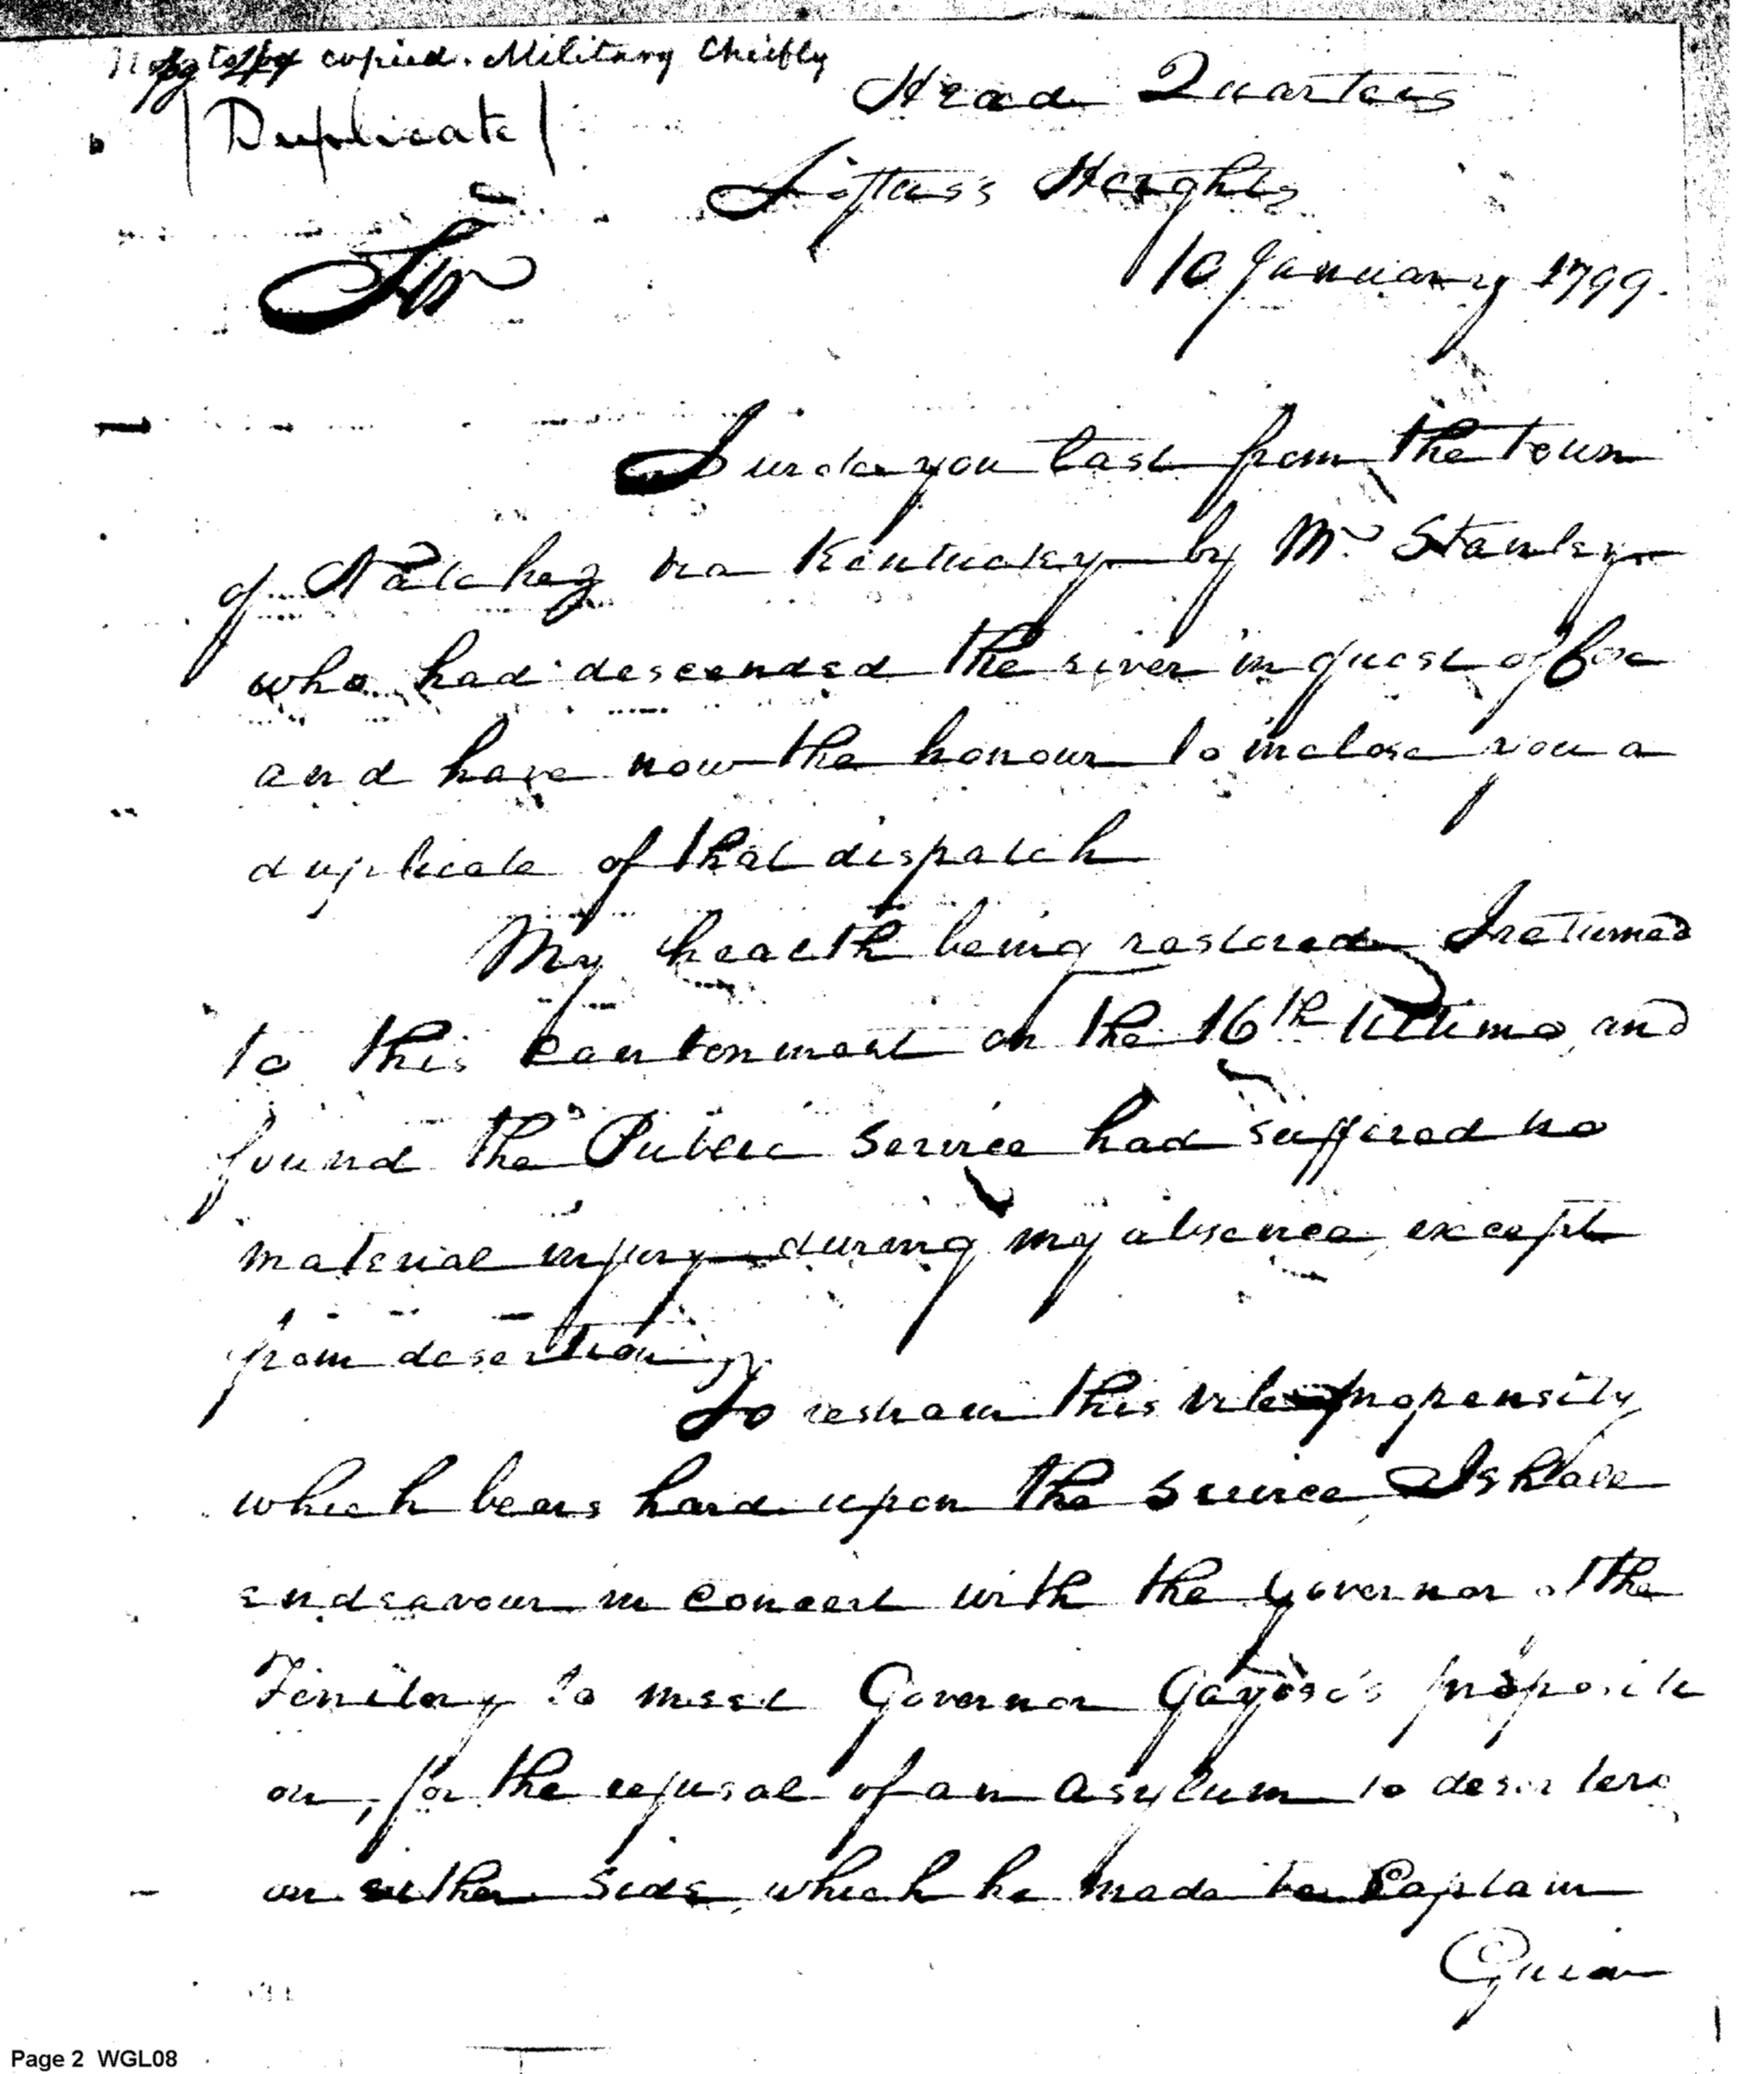 copied. Military Chiefly
Duplicate
Head Quarters
Loftus's Heights
10 January 1799.
Sir
I wrote you last from the town
of Natchez via Kentucky by Mr. Stanley
who had descended the river in quest of
and have now the honour to inclose you a
duplicate of that dispatch
My health being restored I returned
to this Cantonment on the 16th Ultimo, and
found the Public Service had suffered no
material injury during my absence, except
from desertion,
To restrain this vile propensity
which bears hard upon the Service, I shall
endeavour in Concert with the Governor of the
Territory to meet Governor Gayoso's propositi
on, for the refusal of an Asylum to deserters
on either side, which he made to Captain
Guion
Page 2 WGL08